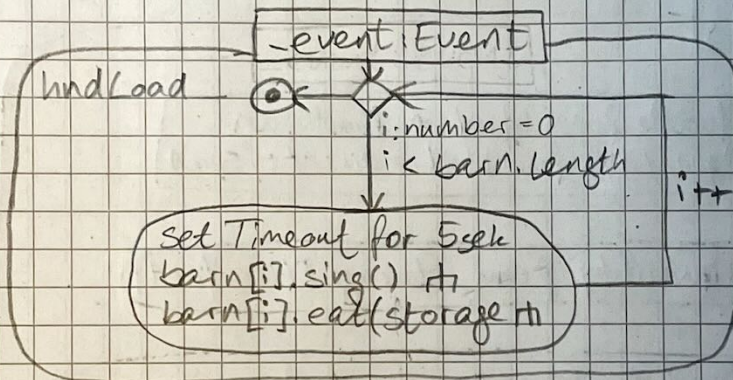 _event:Event
hndLoad
i:number=0
i< barn.length
i++
set Timeout for 5sek
barn[i].sing()
barn[i].eat(storage